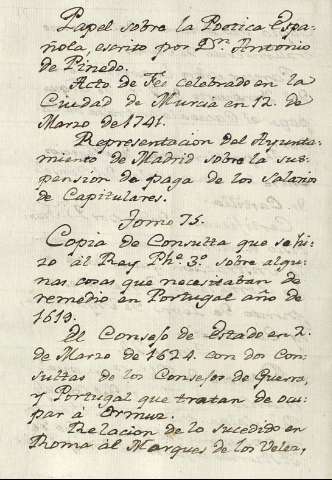 Papel sobre la Poetica Espa-
ñola, escrito por Dn. Antonio
de Pinedo.
Acto de Fee celebrado en la
Ciudad de Murcia en 12. de
Marzo de 1741.
Representacion del Ayunta-
miento de Madrid sobre la sus-
pension de paga de los Salarios
de Capitulares.
Tomo 75.
Copia de Consulta que se hi-
zo àl Rey Phe. 3º. sobre algu-
nas cosas que necesitaban de
remedio en Portugal año de
1619.
El Consejo de Estado en 2.
de Marzo de 1624. con dos Con-
sultas de los Consejos de Guerra,
y Portugal que tratan de ocu-
par à Ormuz.
Relacion de lo sucedido en
Roma àl Marques de los Velez,